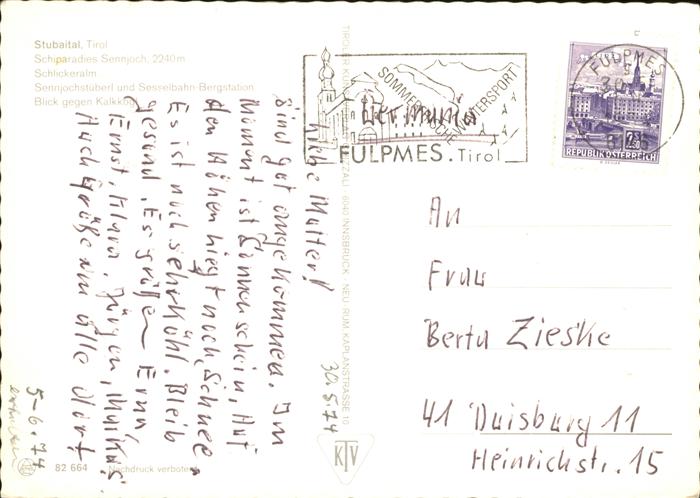 Stubaital, Tirol
Schiparadies Sennjoch, 2240m
Schlickeralm
Sennjochstüberl und Sesselbahn-Bergstation
Blick gegen Kalkkög
Liebe Mutter!
Sind gut angekommen. Im
Moment ist Sonnenschein, Auf
den Höhen liegt noch Schnee.
Es ist noch sehr kühl. Bleib
gesund. Es grüßen Erna
Ernst, Klara, Jürgen, Markus.
Auch Grüße an alle dort
5-6.74
82 664 Nachdruck verboten
TIROLER 6040 INNSBRUCK NEU RUM KAPLANSTRASSE 10
30.5.74
KTV
SOMMER WINTERSPORT
FULPMES. Tirol
FULPMES
REPUBLIK ÖSTERREICH
An
Frau
Berta Zieske
41 Duisburg 11
Heinrichstr. 15